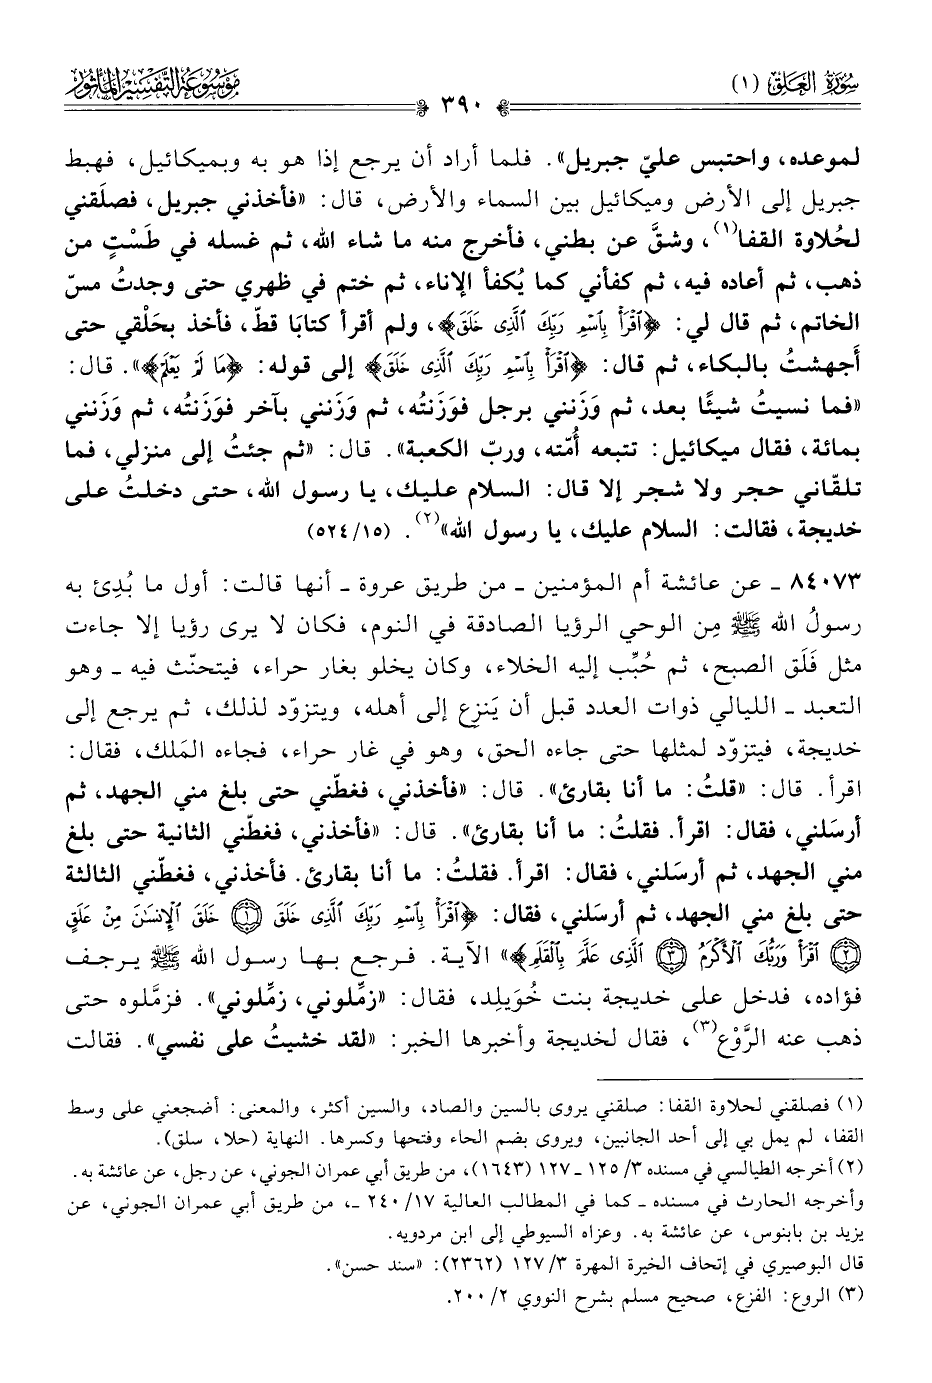 سورة العلق (١)
٣٩٠
موسوعة التفسير المأثور
لموعده، واحتبس عليّ جبريل». فلما أراد أن يرجع إذا هو به وبميكائيل، فهبط
جبريل إلى الأرض وميكائيل بين السماء والأرض، قال: «فأخذني جبريل، فصلَقني
لحُلاوة القفا(١)، وشقَّ عن بطني، فأخرج منه ما شاء الله، ثم غسله في طَسْتٍ من
ذهب، ثم أعاده فيه، ثم كفأني كما يُكفأ الإناء، ثم ختم في ظهري حتى وجدتُ مسّ
الخاتم، ثم قال لي: ﴿ٱقۡرَأۡ بِٱسۡمِ رَبِّكَ ٱلَّذِى خَلَقَ﴾، ولم أقرأ كتابًا قطّ، فأخذ بحَلْقي حتى
أَجهشتُ بالبكاء، ثم قال: ﴿ٱقۡرَأۡ بِٱسۡمِ رَبِّكَ ٱلَّذِى خَلَقَ﴾ إلى قوله: ﴿مَا لَمۡ يَعۡلَمۡ﴾». قال:
«فما نسيتُ شيئًا بعد، ثم وَزَنني برجل فوَزَنتُه، ثم وَزَنني بآخر فوَزَنتُه، ثم وَزَنني
بمائة، فقال ميكائيل: تتبعه أُمّته، وربّ الكعبة». قال: «ثم جئتُ إلى منزلي، فما
تلقّاني حجر ولا شجر إلا قال: السلام عليك، يا رسول الله، حتى دخلتُ على
خديجة، فقالت: السلام عليك، يا رسول الله»(٢). (٥٢٤/١٥)
٨٤٠٧٣ ـ عن عائشة أم المؤمنين ـ من طريق عروة ـ أنها قالت: أول ما بُدِئ به
رسولُ الله ﷺ مِن الوحي الرؤيا الصادقة في النوم، فكان لا يرى رؤيا إلا جاءت
مثل فَلَق الصبح، ثم حُبِّب إليه الخلاء، وكان يخلو بغار حراء، فيتحنّث فيه ـ وهو
التعبد ـ الليالي ذوات العدد قبل أن يَنزِع إلى أهله، ويتزوّد لذلك، ثم يرجع إلى
خديجة، فيتزوّد لمثلها حتى جاءه الحق، وهو في غار حراء، فجاءه المَلك، فقال:
اقرأ. قال: «قلتُ: ما أنا بقارئ». قال: «فأخذني، فغطّني حتى بلغ مني الجهد، ثم
أرسَلني، فقال: اقرأ. فقلتُ: ما أنا بقارئ». قال: «فأخذني، فغطّني الثانية حتى بلغ
مني الجهد، ثم أرسَلني، فقال: اقرأ. فقلتُ: ما أنا بقارئ. فأخذني، فغطّني الثالثة
حتى بلغ مني الجهد، ثم أرسَلني، فقال: ﴿ٱقۡرَأۡ بِٱسۡمِ رَبِّكَ ٱلَّذِى خَلَقَ ١ خَلَقَ ٱلۡإِنسَٰنَ مِنۡ عَلَقٍ
٢ ٱقۡرَأۡ وَرَبُّكَ ٱلۡأَكۡرَمُ ٣ ٱلَّذِى عَلَّمَ بِٱلۡقَلَمِ﴾» الآية. فرجع بها رسول الله ﷺ يرجف
فؤاده، فدخل على خديجة بنت خُوَيلِد، فقال: «زمِّلوني، زمِّلوني». فزمَّلوه حتى
ذهب عنه الرَّوْع(٣)، فقال لخديجة وأخبرها الخبر: «لقد خشيتُ على نفسي». فقالت
(١) فصلقني لحلاوة القفا: صلقني يروى بالسين والصاد، والسين أكثر، والمعنى: أضجعني على وسط
القفا، لم يمل بي إلى أحد الجانبين، ويروى بضم الحاء وفتحها وكسرها. النهاية (حلا، سلق).
(٢) أخرجه الطيالسي في مسنده ٣/ ١٢٥ ـ ١٢٧ (١٦٤٣)، من طريق أبي عمران الجوني، عن رجل، عن عائشة به.
وأخرجه الحارث في مسنده ـ كما في المطالب العالية ١٧/ ٢٤٠ ـ، من طريق أبي عمران الجوني، عن
يزيد بن بابنوس، عن عائشة به. وعزاه السيوطي إلى ابن مردويه.
قال البوصيري في إتحاف الخيرة المهرة ٣/ ١٢٧ (٢٣٦٢): «سند حسن».
(٣) الروع: الفزع، صحيح مسلم بشرح النووي ٢/ ٢٠٠.